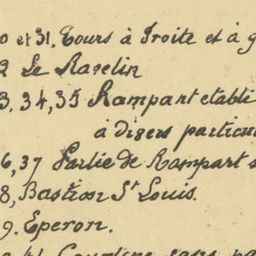 0 et 31. Tours à Droite et à g
2 Le Ravelin
3, 34, 35 Rampant etabli
à divers particu
6, 37 Partie de Rampart s
8, Bastion St Louis.
9. Eperon.